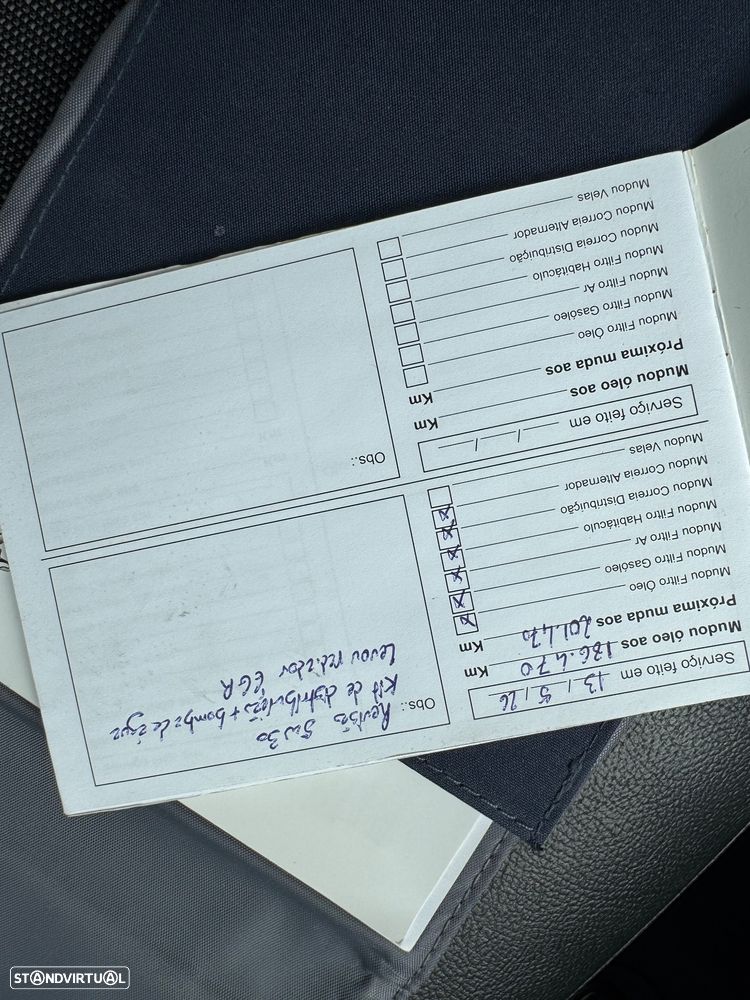 Serviço feito em 13 / 5 / 26
Mudou óleo aos 186.470 Km
Próxima muda aos 201.470 Km
Mudou Filtro Óleo
Mudou Filtro Gasóleo
Mudou Filtro Ar
Mudou Filtro Habitáculo
Mudou Correia Distribuição
Mudou Correia Alternador
Mudou Velas
Obs.:
Revisão 5w30
Kit de distribuição + bomba de água
Levou radiador EGR
Serviço feito em / /
Mudou óleo aos Km
Próxima muda aos Km
Mudou Filtro Óleo
Mudou Filtro Gasóleo
Mudou Filtro Ar
Mudou Filtro Habitáculo
Mudou Correia Distribuição
Mudou Correia Alternador
Mudou Velas
Obs.:
STANDVIRTUAL